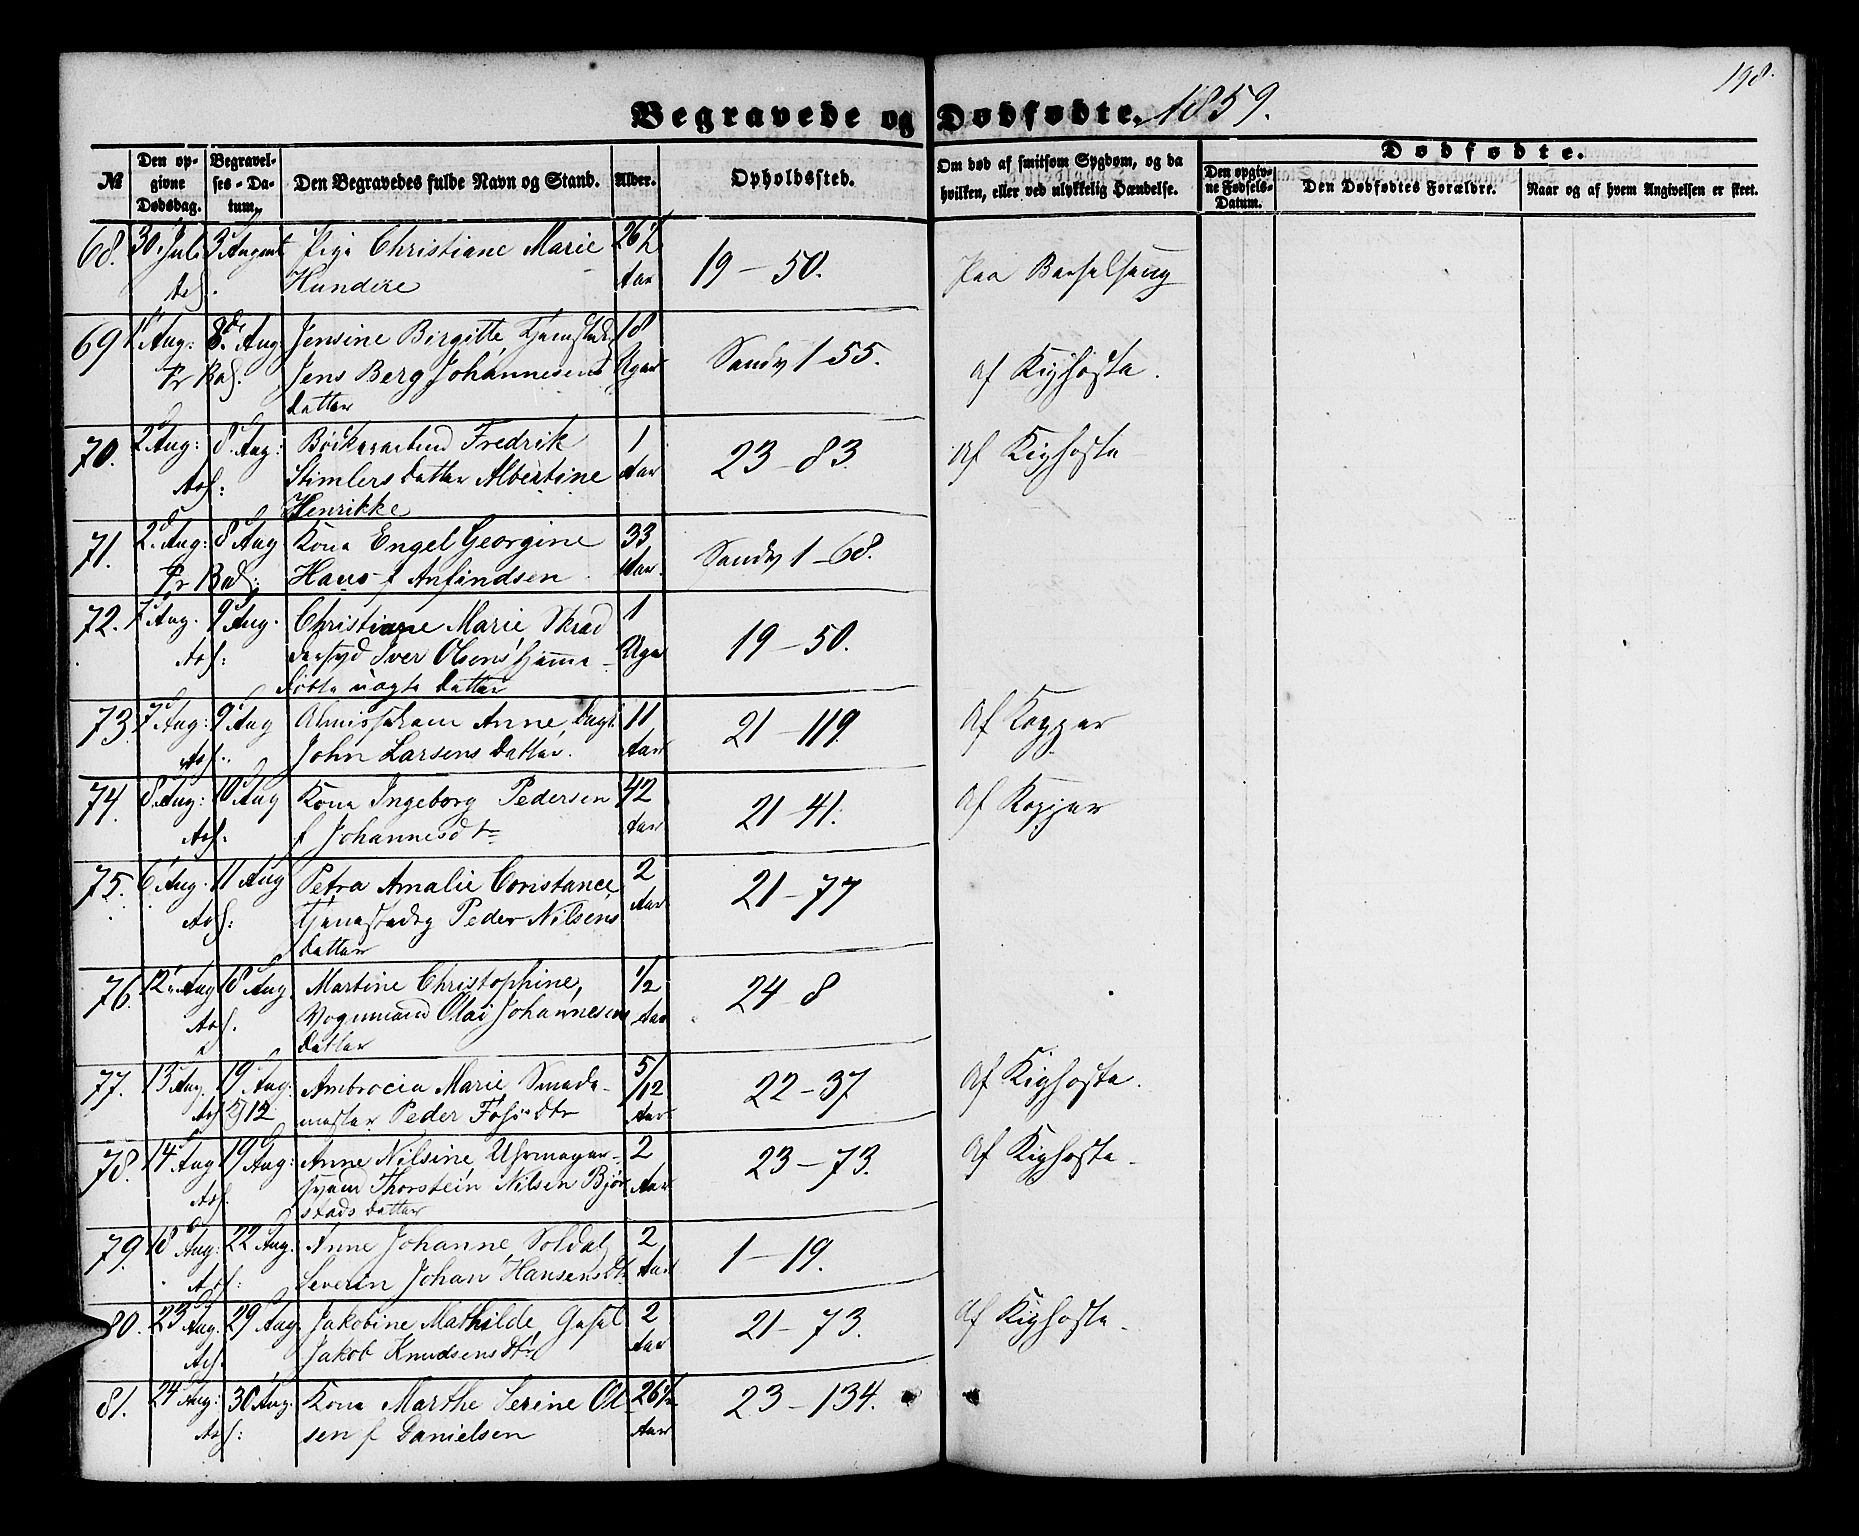 198.
Begravede og Dødfødte. 1859.
№
Den opgivne Dødsdag.
Begravelses-Datum.
Den Begravedes fulde Navn og Stand.
Alder.
Opholdssted.
Om død af smitsom Sygdom, og da hvilken, eller ved ulykkelig Hændelse.
Dødfødte.
Den opgivne Fødsels-Datum.
Den Dødfødtes Forældre.
Naar og af hvem Angivelsen er skeet.
68. 30 Juli 3 August Pige Christiane Marie 26 1/2
Kundere Aar 19 - 50. Paa Barselseng
69 1 Aug: 8de Aug Jensine Birgitte, 18
Jens Berg Johannesens Uger Sandv 1-55. af Kighoste.
datter
70. 2 Aug: 8 Aug: Fredrik 1
Stimlers datter Albertine Aar 23 - 83. Af Kighoste
Henrikke
71. 2 Aug: 8 Aug Kone Engel Georgine 33
Hans f Anfindsen. Aar. Sandv 1-68.
72. 7 Aug. 9 Aug. Christiane Marie, Skrad
dersvd Iver Olsens hjemme 1 Uge 19 - 50.
døbte uægte datter
73. 7 Aug: 9 Aug Anne, 11
John Larsens datter. Aar 21 - 119. Af Kopper
74. 8 Aug: 10 Aug Kone Ingeborg Pedersen 42
f Johannesdtr Aar 21-41. Af Kopper
75. 6 Aug. 11 Aug Petra Amalie Constance 2
Tjenestedrg Peder Nilsens Aar 21 - 77
datter
76. 12 Aug 18 Aug. Martine Christophine, 1/2
Vognmand Olai Johannesens Aar 24-8
datter
77. 13 Aug. 19 Aug. Ambrocia Marie Smede- 5/12
mester Peder dtr Aar 22-37 Af Kighoste.
78. 14 Aug 19 Aug: Anne Nilsine Uhrmager- 2
svend Thorstein Nilsen Bjør Aar 23 - 73. Af Kighoste
stads datter
79. 18 Aug: 22 Aug. Anne Johanne, Soldat 2
Severin Johan Hansens dtr Aar 1 - 19.
80. 23 Aug. 29 Aug. Jakobine Mathilde 2
Jakob Knudsens dtr Aar 21 - 73. Af Kighoste
81. 24 Aug: 30 Aug. Kone Marthe Serine Ol- 26 1/2
sen f Danielsen Aar 23 - 134.